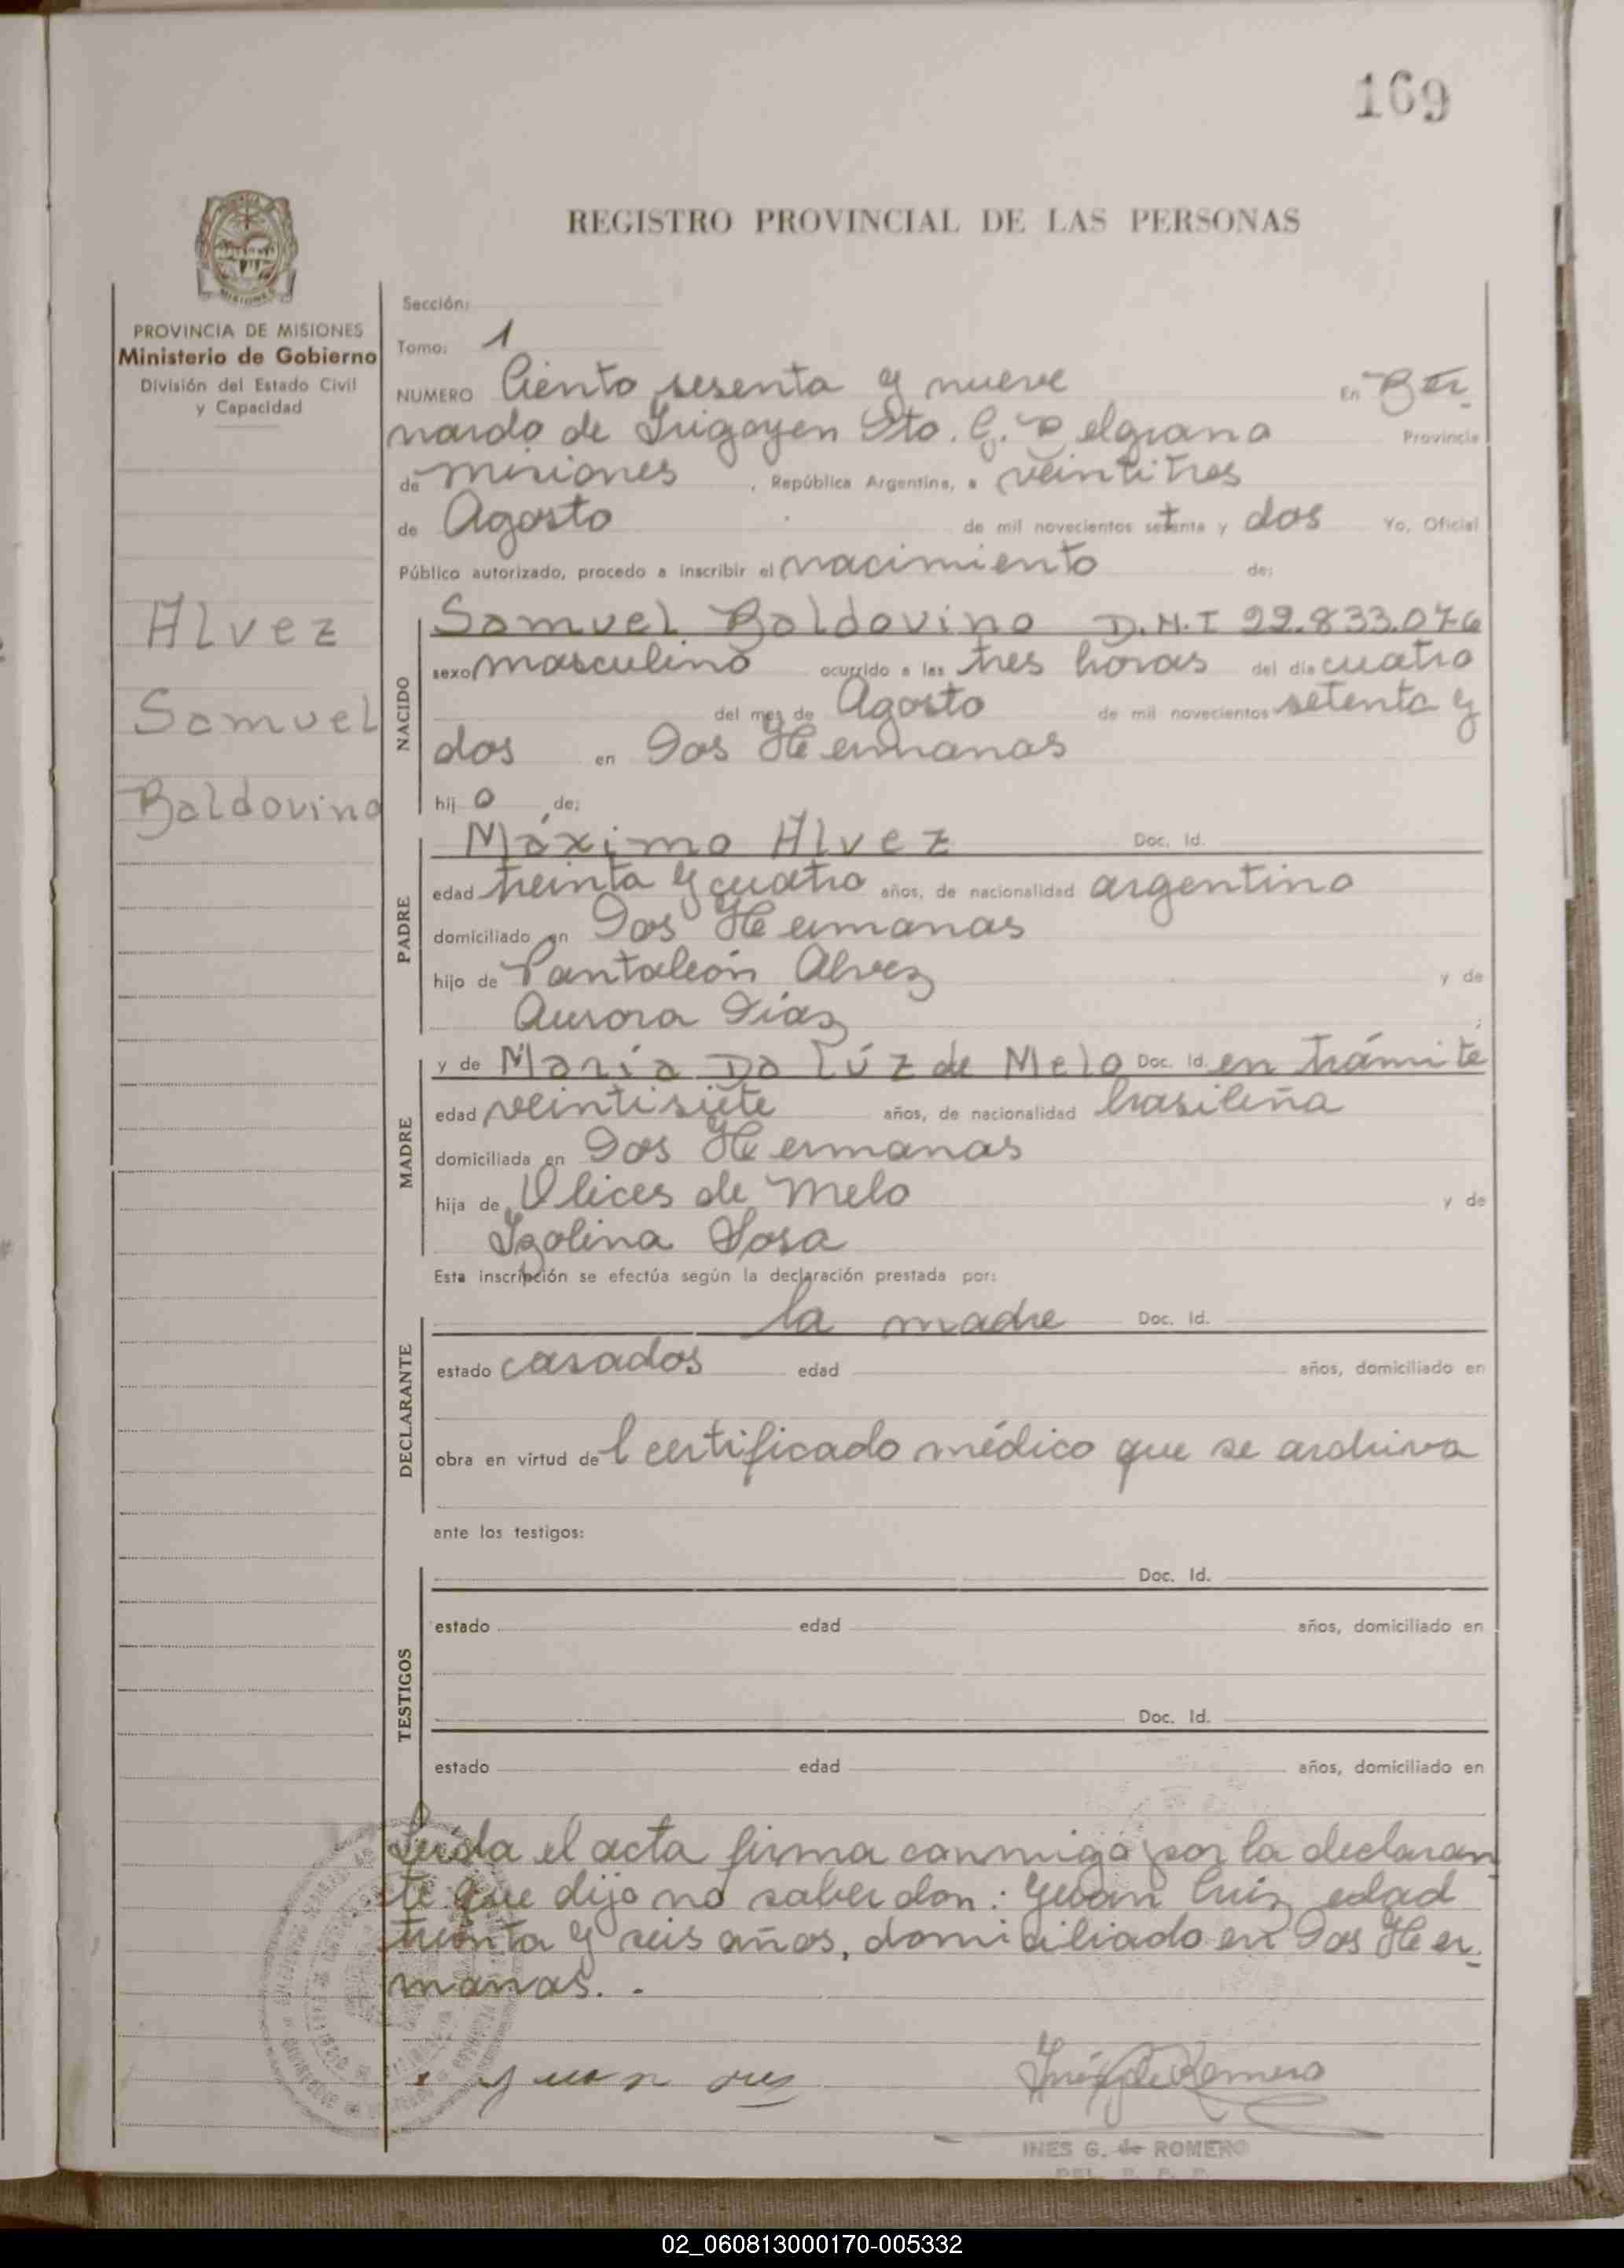 169
REGISTRO PROVINCIAL DE LAS PERSONAS
MISIONES
PROVINCIA DE MISIONES
Ministerio de Gobierno
División del Estado Civil
y Capacidad
Alvez
Samuel
Baldovino
Sección:
Tomo: 1
NUMERO Ciento sesenta y nueve En Ber
nardo de Irigoyen Dto. G. Belgrano Provincia
de Misiones , República Argentina, a veintitres
de Agosto de mil novecientos setenta y dos Yo, Oficial
Público autorizado, procedo a inscribir el nacimiento de:
NACIDO
Samuel Baldovino D.N.I 22.833.076
sexo masculino ocurrido a las tres horas del día cuatro
del mes de Agosto de mil novecientos setenta y
dos en Dos Hermanas
hij o de:
PADRE
Máximo Alvez Doc. Id.
edad treinta y cuatro años, de nacionalidad argentino
domiciliado en Dos Hermanas
hijo de Pantaleón Alvez y de
Aurora Díaz ;
MADRE
y de María Da Lúz de Melo Doc. Id. en trámite
edad veintisiete años, de nacionalidad brasileña
domiciliada en Dos Hermanas
hija de Ulices de Melo y de
Izolina Sosa
Esta inscripción se efectúa según la declaración prestada por:
DECLARANTE
la madre Doc. Id.
estado casados edad años, domiciliado en
obra en virtud de l certificado médico que se archiva
ante los testigos:
TESTIGOS
Doc. Id.
estado edad años, domiciliado en
Doc. Id.
estado edad años, domiciliado en
Leída el acta firma conmigo por la declaran
te que dijo no saber don: Yvan Luiz edad
treinta y seis años, domiciliado en Dos Her
manas. -
Inés G. de Romero
INES G. de ROMERO
02_060813000170-005332